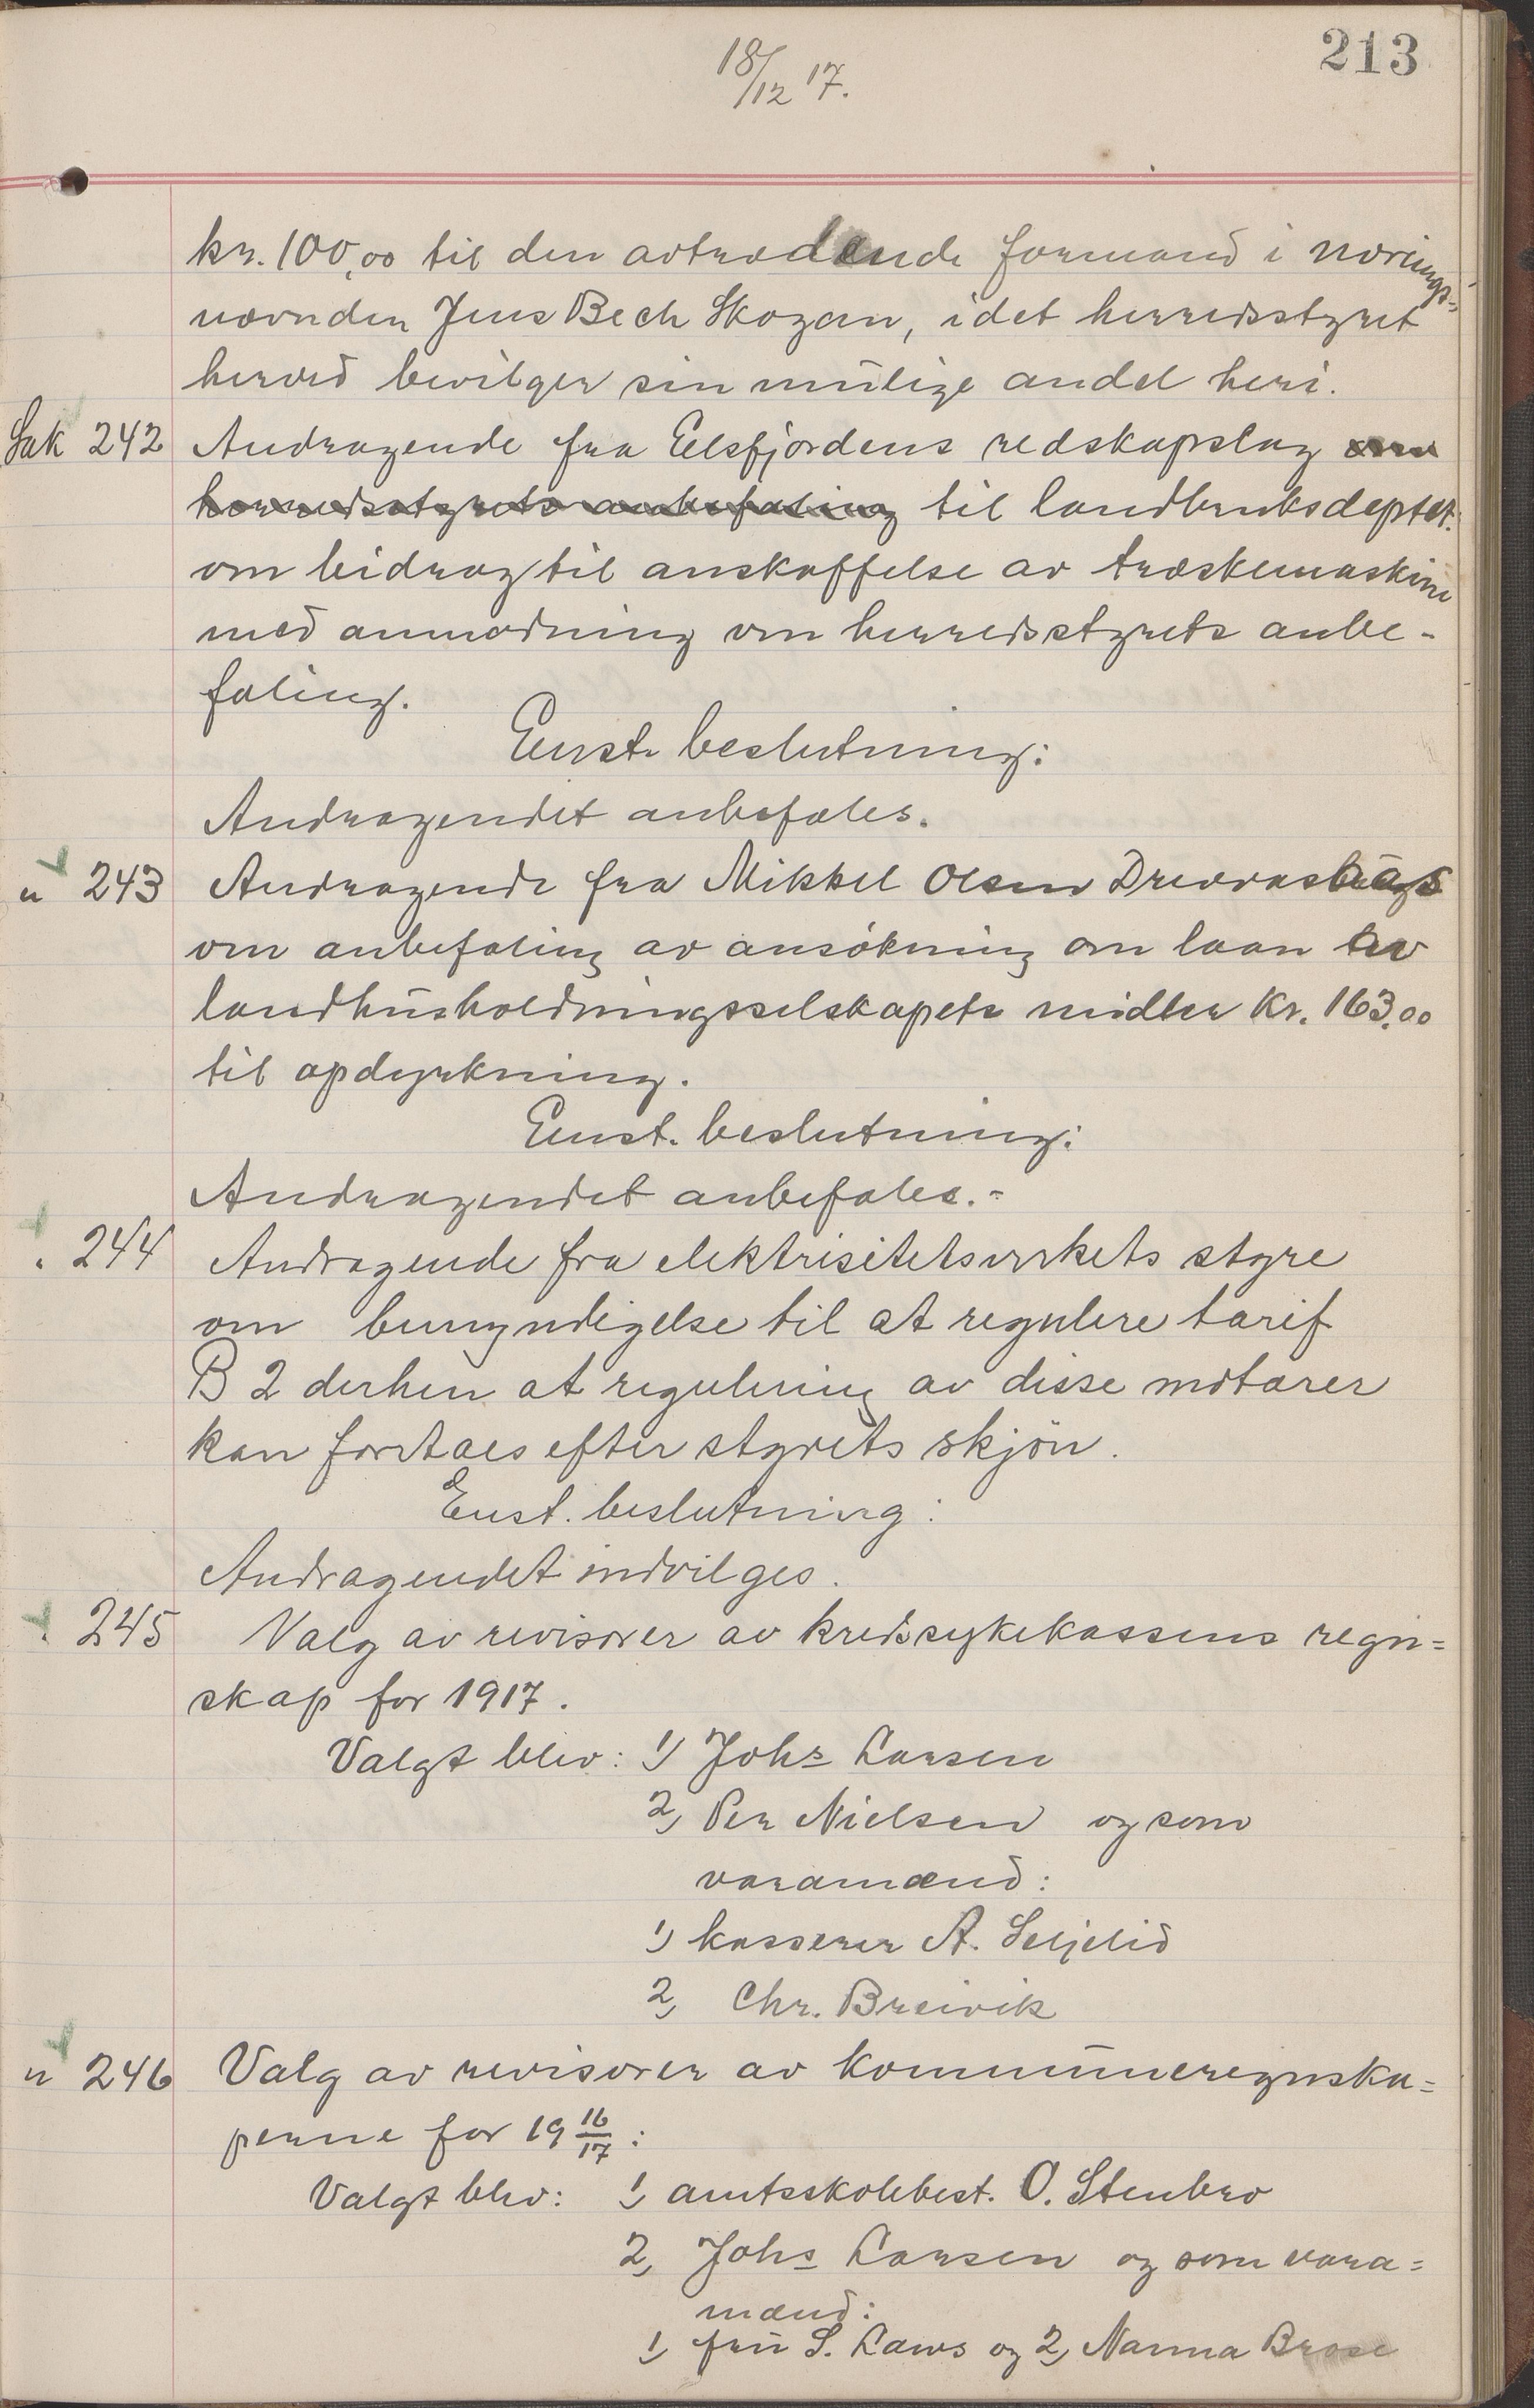 213
18/12 17.
kr. 100,00 til den avtrædende formand i nærings=
nævnden Jens Bech Skogan, idet herredsstyret
herved bevilger sin mulige andel heri.
Sak 242 Andragende fra Eelsfjordens redskapslag om
herredsstyrets anbefaling til landbruksdeptet.
om bidrag til anskaffelse av træskemaskine
med anmodning om herredsstyrets anbe-
faling.
Enst. beslutning:
Andragendet anbefales.
" 243 Andragende fra Mikkel Olsen
om anbefaling av ansökning om laan av
landhusholdningsselskapets midler kr. 163,00
til opdyrkning.
Enst. beslutning:
Andragendet anbefales.=
" 244 Andragende fra elektrisitetsverkets styre
om bemyndigelse til at regulere tarif
B 2 derhen at regulering av disse motorer
kan foretaes efter styrets skjön.
Enst. beslutning:
Andragendet indvilges.
" 245 Valg av revisorer av kredssykekassens regn=
skap for 1917.
Valgt blev: 1) Johs Larsen
2) Per Nielsen og som
varamænd:
1) kasserer A. Seljelid
2) Chr. Breivik
" 246 Valg av revisorer av kommuneregnska=
perne for 19 16/17:
Valgt blev: 1) amtsskolebest. O. Stenbro
2) Johs Larsen og som vara=
mænd:
1) fru S. Laws og 2) Nanna Brose